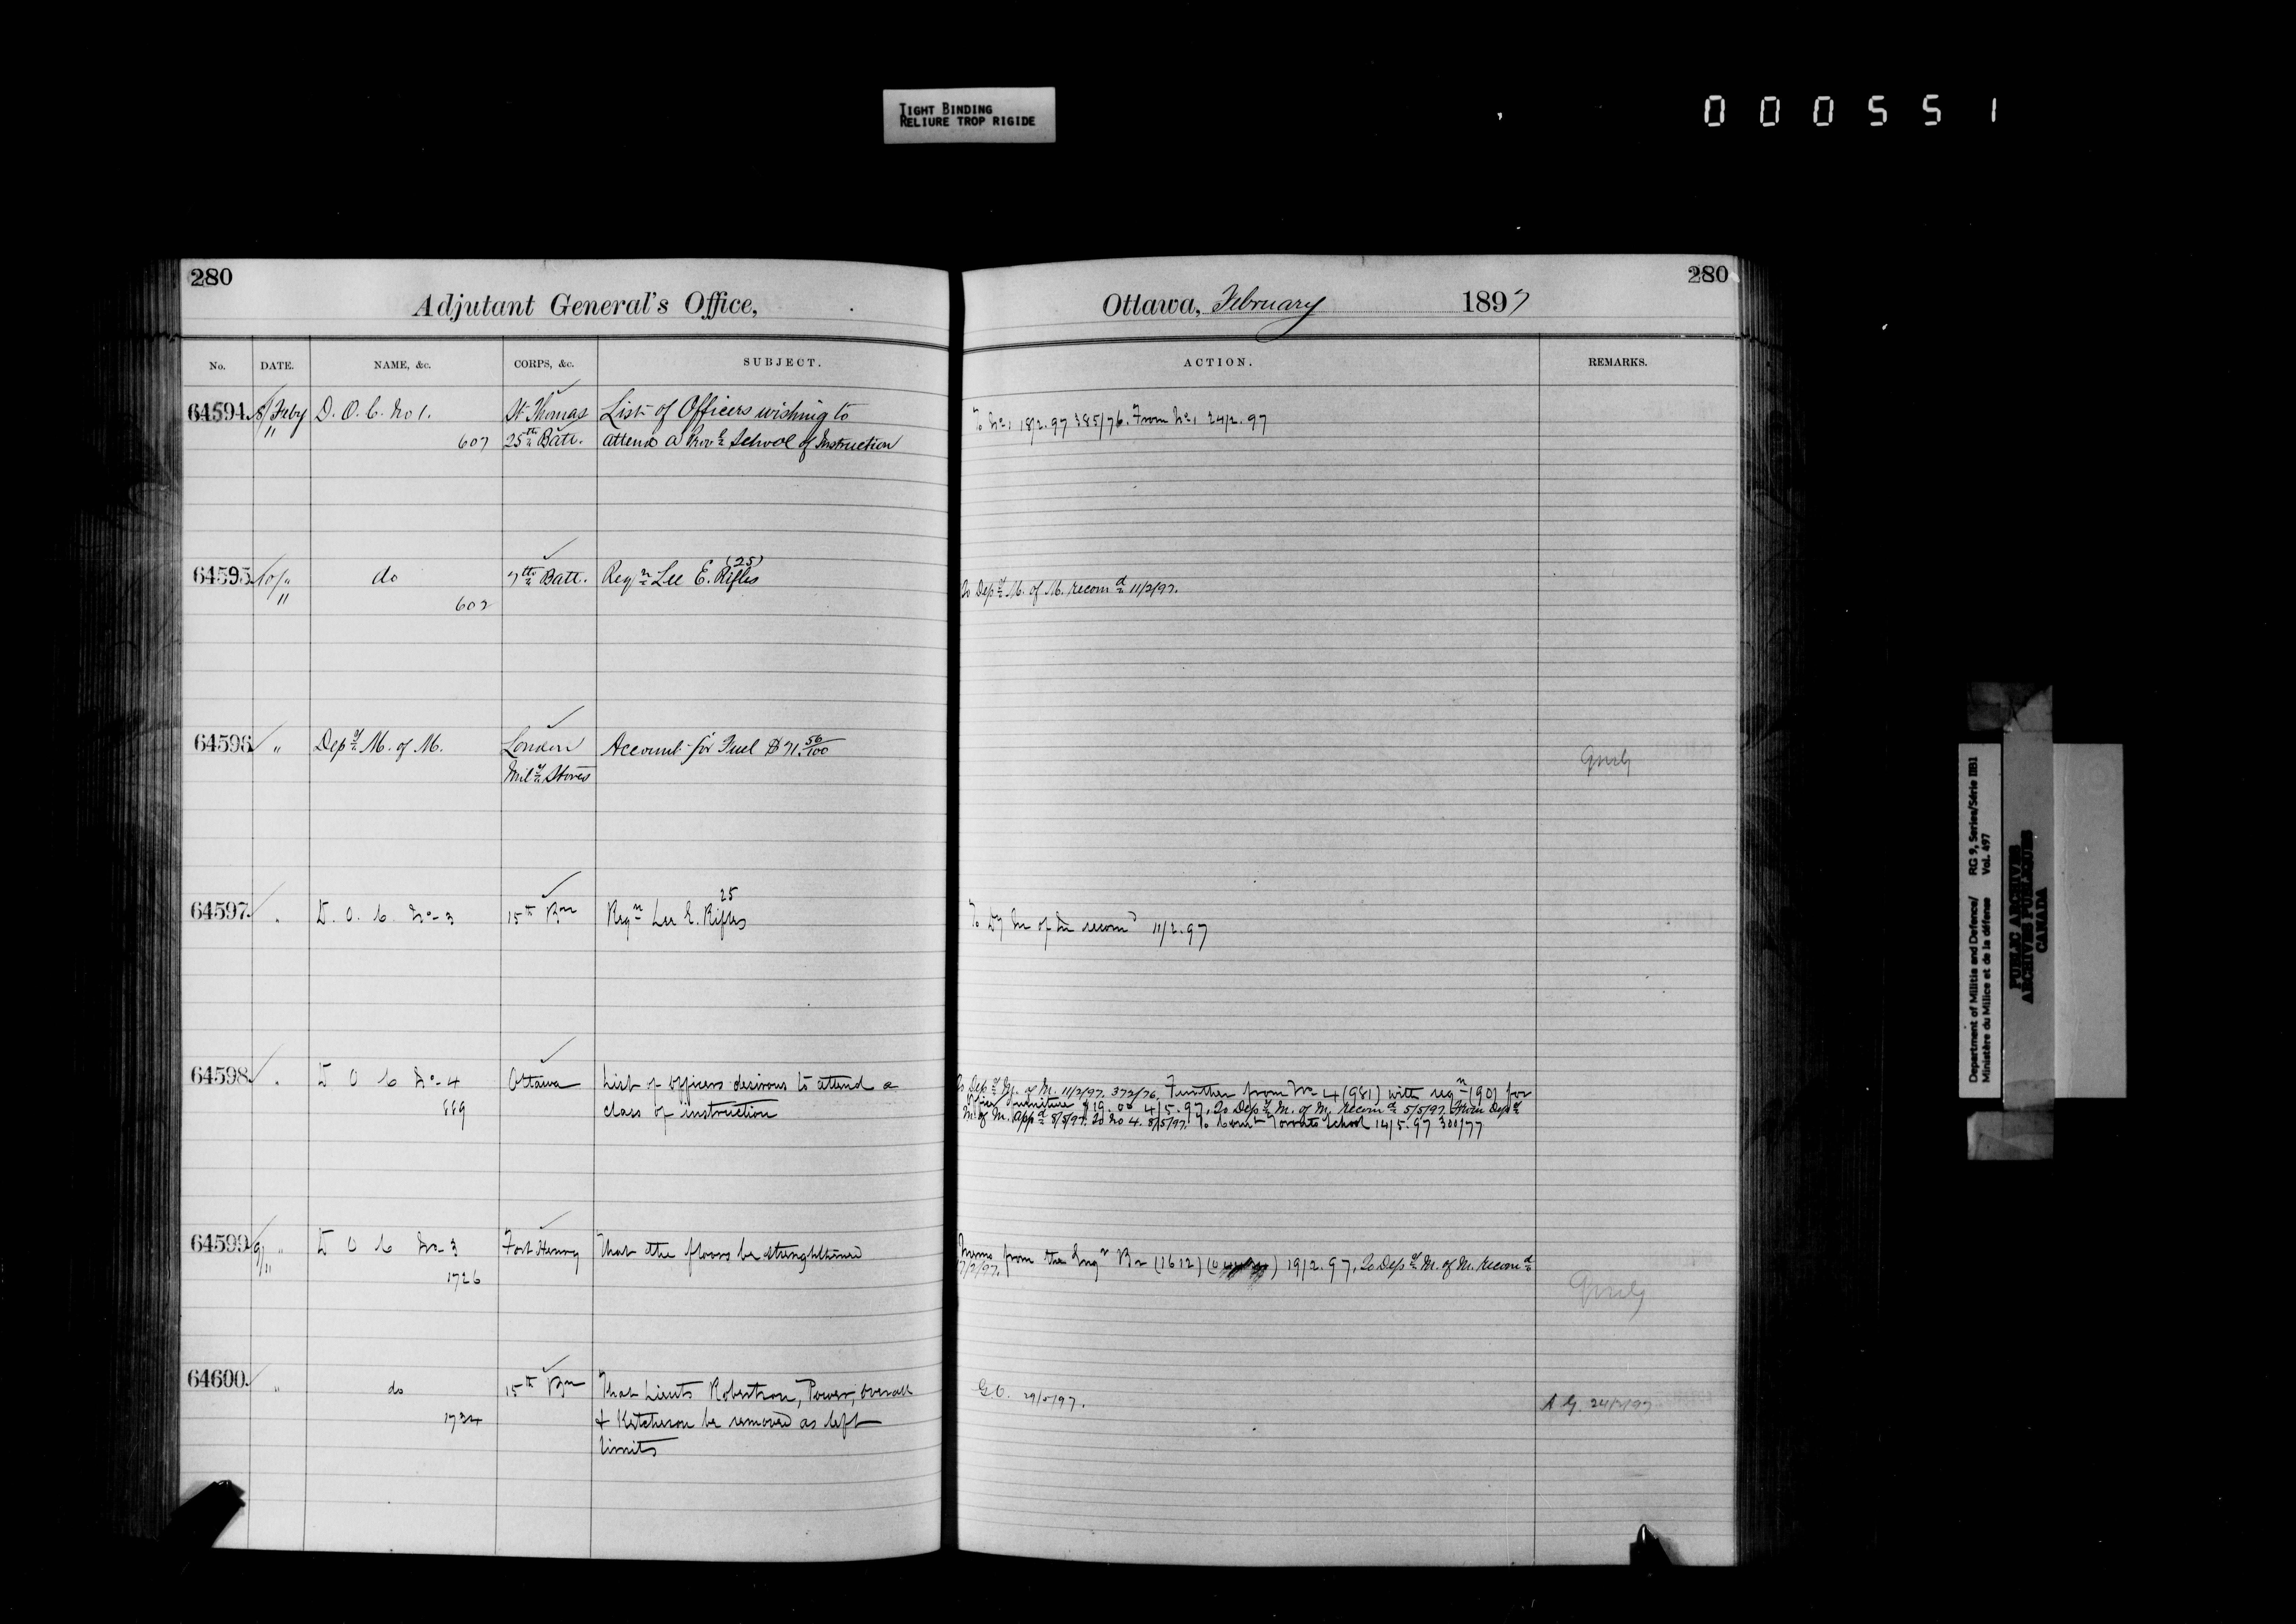 TIGHT BINDING
RELIURE TROP RIGIDE
000551
280
Adjutant General's Office,
No. DATE. NAME, &c. CORPS, &c. SUBJECT.
64594 8/11 Feby D. O. C. No 1. St. Thomas List of Officers wishing to
607 25th Batt. attend a Provl School of Instruction
64595 10/11 " do 7th Batt. Reqn Lee E. Rifles (25)
602
64596 " Depy M. of M. London Account for Fuel $71.56/100
Mily Stores
64597 " D. O. C. No 3 15th Bn Reqn Lee E. Rifles 25
64598 " D O C No 4 Ottawa List of officers desirous to attend a
889 class of instruction
64599 9/11 " D O C No 3 Fort Henry That the floors be strenghthened
1726
64600 " do 15th Bn That Lieuts Robertson, Power, Overall
1734 & Ketcheson be removed as left
limits
280
Ottawa, February 1897
ACTION. REMARKS.
To No 1 18/2.97 385/76. From No 1 24/2.97
To Depy M. of M. recomd 11/2/97.
To Dy M of M recomd 11/2.97
To Depy M. of M. 11/2/97. 372/76. Further from No 4 (981) with reqn (90) for
Office furniture $19.00 4/5.97, To Depy M. of M. recomd 5/5/97. From Depy
M. of M. appd 8/5/97. To No 4. 8/5/97. To Comt Toronto School 14/5.97 300/77
Memo from the Engr Bn (1612) 19/2.97, To Depy M. of M. recomd
G.O. 29/5/97.
A G. 24/2/97
Department of Militia and Defence/
Ministère du Milice et de la défense
RG 9, Series/Série IIB1
Vol. 497
PUBLIC ARCHIVES
ARCHIVES PUBLIQUES
CANADA